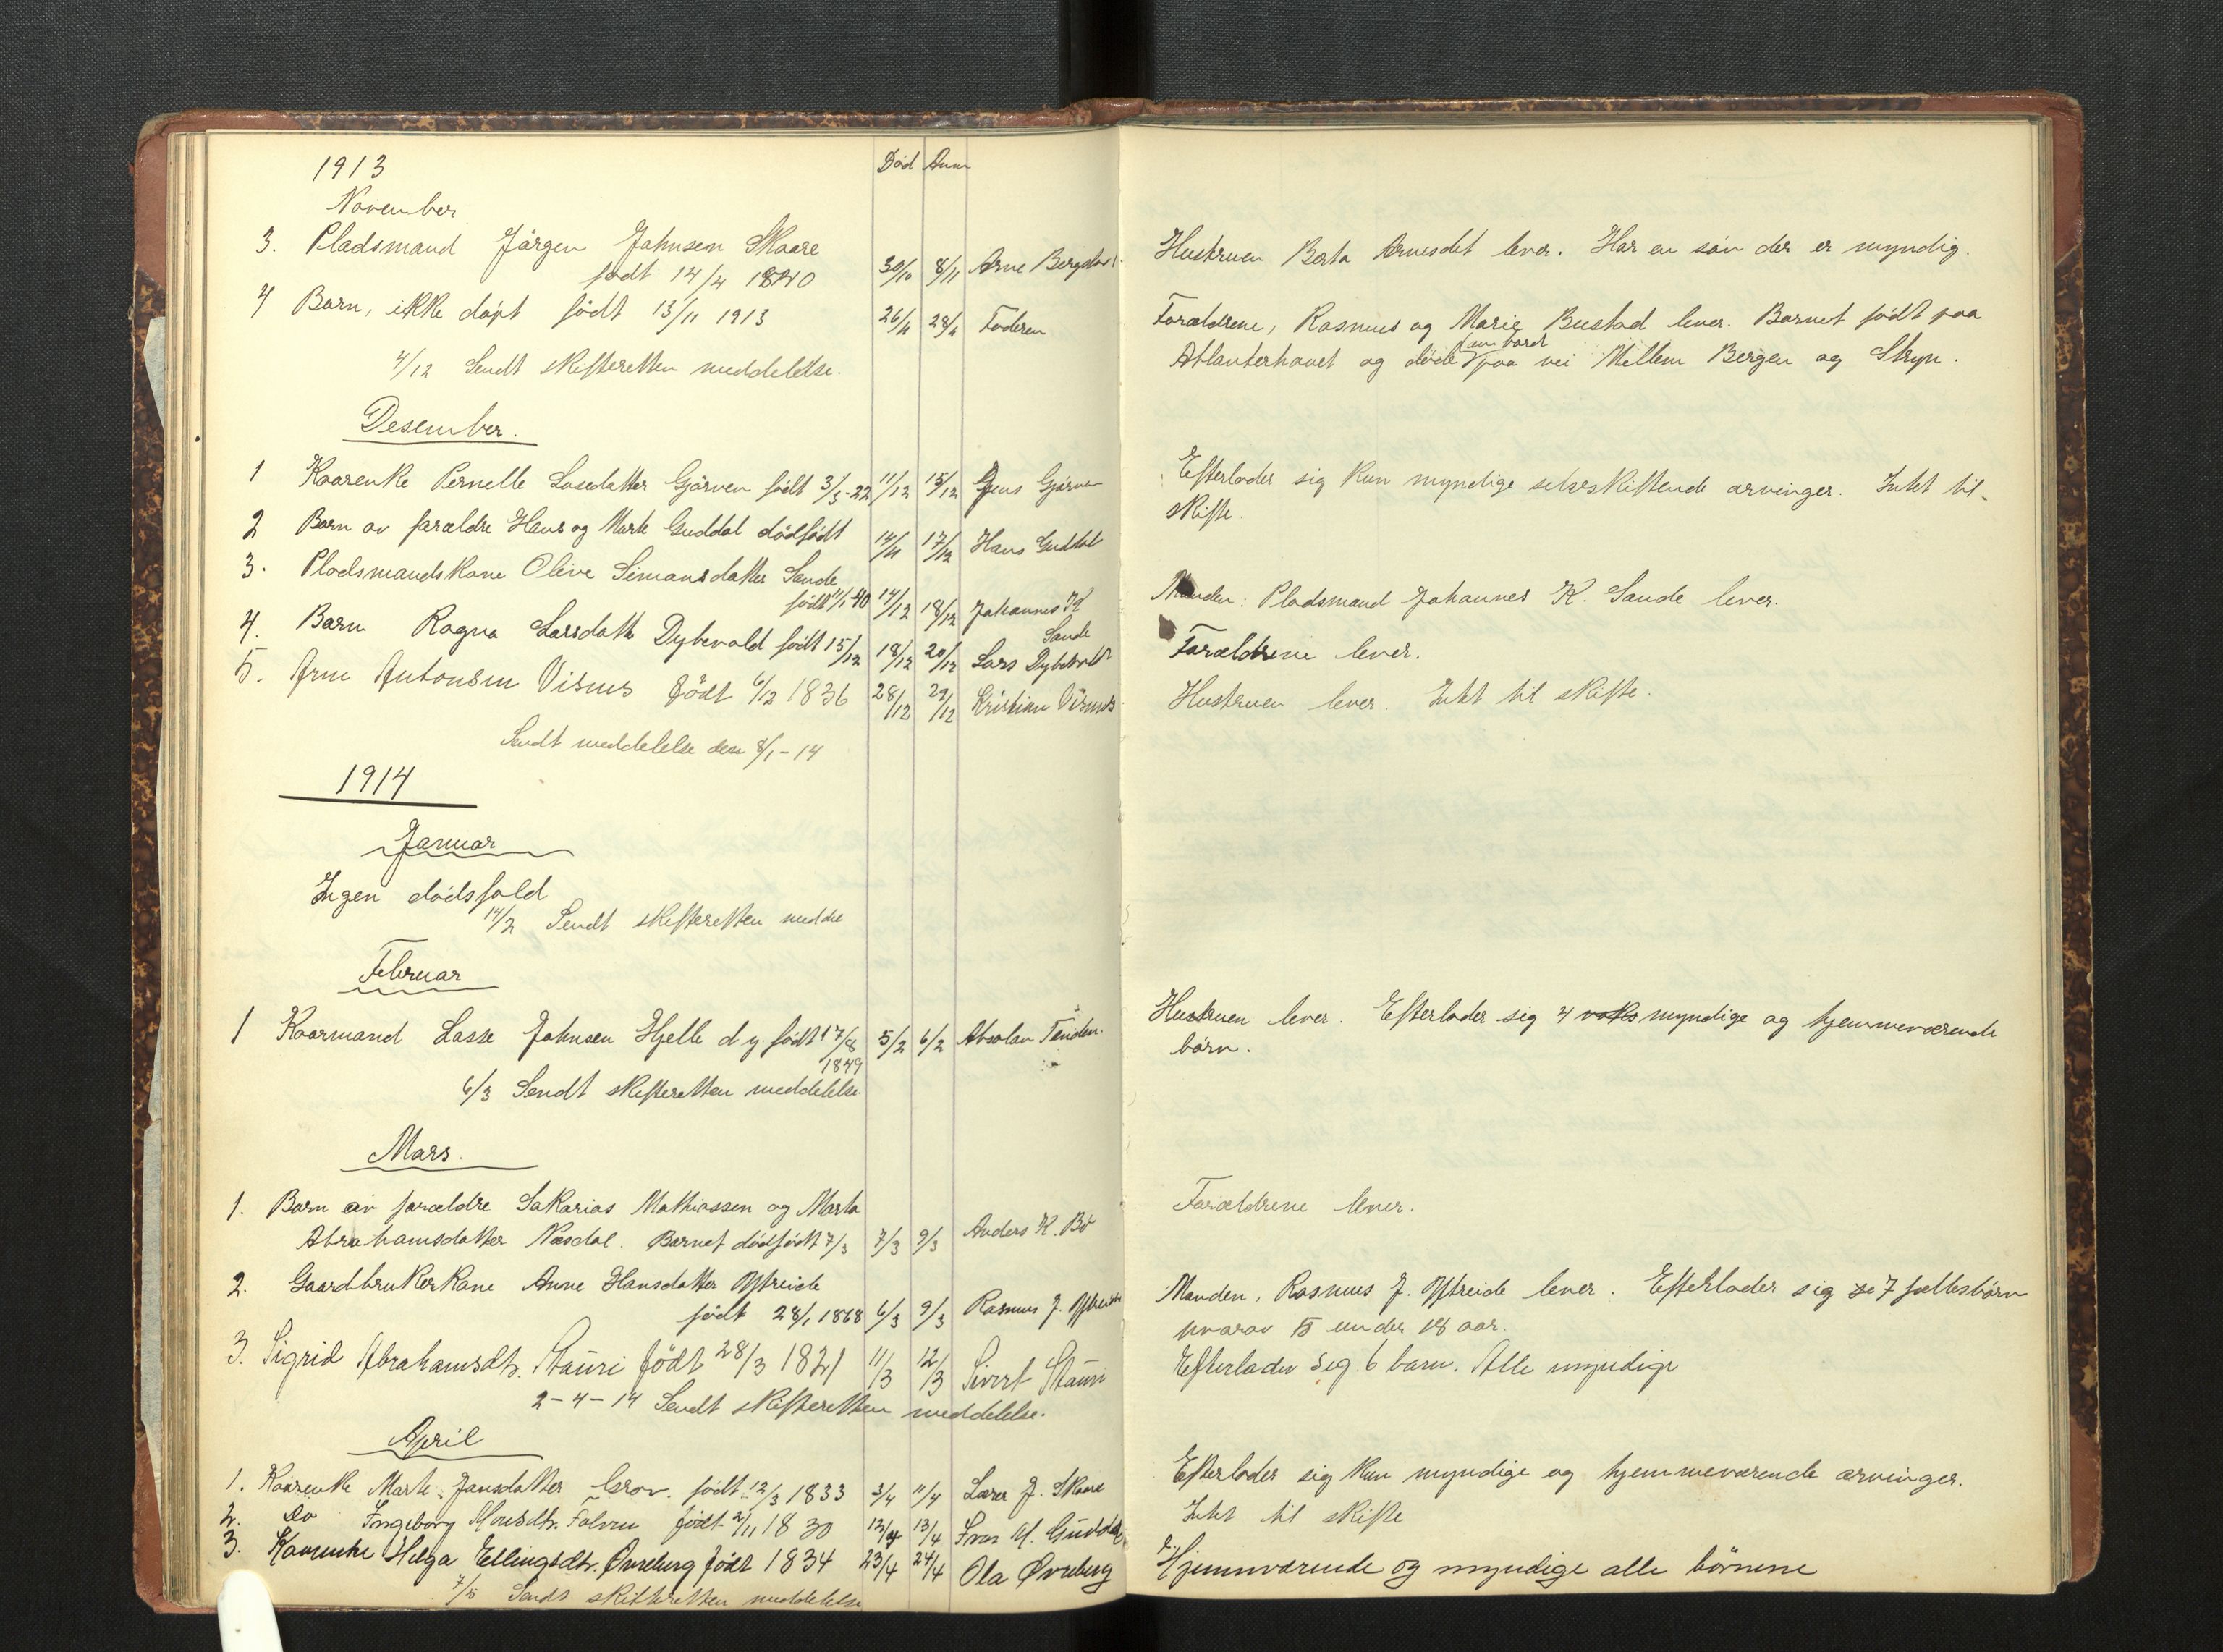 1913
Død Anm
November
3. Pladsmand Jörgen Johnsen Skaare
født 14/4 1840 30/10 8/11 Arne Bergdal Hustruen Berta Arnesdet lever. Har en søn der er myndig.
4 Barn, ikke døpt født 13/11 1913 26/11 28/11 Faderen Forældrene, Rasmus og Marie Bustad lever. Barnet født paa
Atlanterhavet og døde om bord paa vei Mellem Bergen og Stryn.
4/12 Sendt skifteretten meddelelse.
Desember.
1 Kaarenke Pernelle Lasedatter Gjörven født 3/3-22 11/12 15/12 Jens Gjörven Efterlader sig kun myndige selvskiftende arvinger. Intet til
skifte.
2 Barn av forældre Hans og Marte Guddal dødfødt 14/11 17/12 Hans Guddal
3. Pladsmandskone Olive Simonsdatter Sande
født 11/1-40 14/12 18/12 Johannes K Sande Manden: Pladsmand Johannes K. Sande lever.
4. Barn Ragna Larsdatter Dybevald født 15/12 18/12 20/12 Lars Dybevald Forældrene lever.
5. Arne Antonsen Visnes født 6/12 1836 28/12 29/12 Kristian Visnes Hustruen lever. Intet til skifte.
Sendt meddelelse den 8/1-14
1914
Januar
Ingen dødsfald
14/2 Sendt skifteretten meddel
Februar
1 Kaarmand Lasse Johnsen Hjelle d.y. født 17/8 1849 5/2 6/2 Absolon Tenden. Hustruen lever. Efterlader sig 4 voks myndige og hjemmeværende
børn.
6/3 Sendt skifteretten meddelelse
Mars.
1. Barn av forældre Sakarias Mathiassen og Marta
Abrahamsdatter Næsdal. Barnet dødfødt 7/3 7/3 9/3 Anders K. Bö Forældrene lever.
2. Gaardbrukerkone Anne Hansdatter Opstreide
født 28/1 1868 6/3 9/3 Rasmus J. Opstreide Manden, Rasmus J. Opstreide lever. Efterlader sig 7 fællesbørn
hvorav 5 under 18 aar.
3. Sigrid Abrahamsdtr. Stauri født 28/3 1821 11/3 12/3 Sivert Stauri Efterlader sig 6 barn. Alle myndige
2-4-14 Sendt skifteretten meddelelse.
April
1. Kaarenke Marte Jonsdatter Grov. født 12/3 1833 3/4 11/4 J. Skaare Efterlader sig kun myndige og hjemmeværende arvinger.
Intet til skifte
2. Do Ingeborg Monsdtr. Folven født 2/11 1830 12/4 13/4 M. Guddal
3. Kaarenke Helga Ellingsdtr. Øvreberg født 1834 23/4 24/4 Ola Øvreberg Hjemmværende og myndige alle børnene
7/5 Sendt skifteretten meddelelse